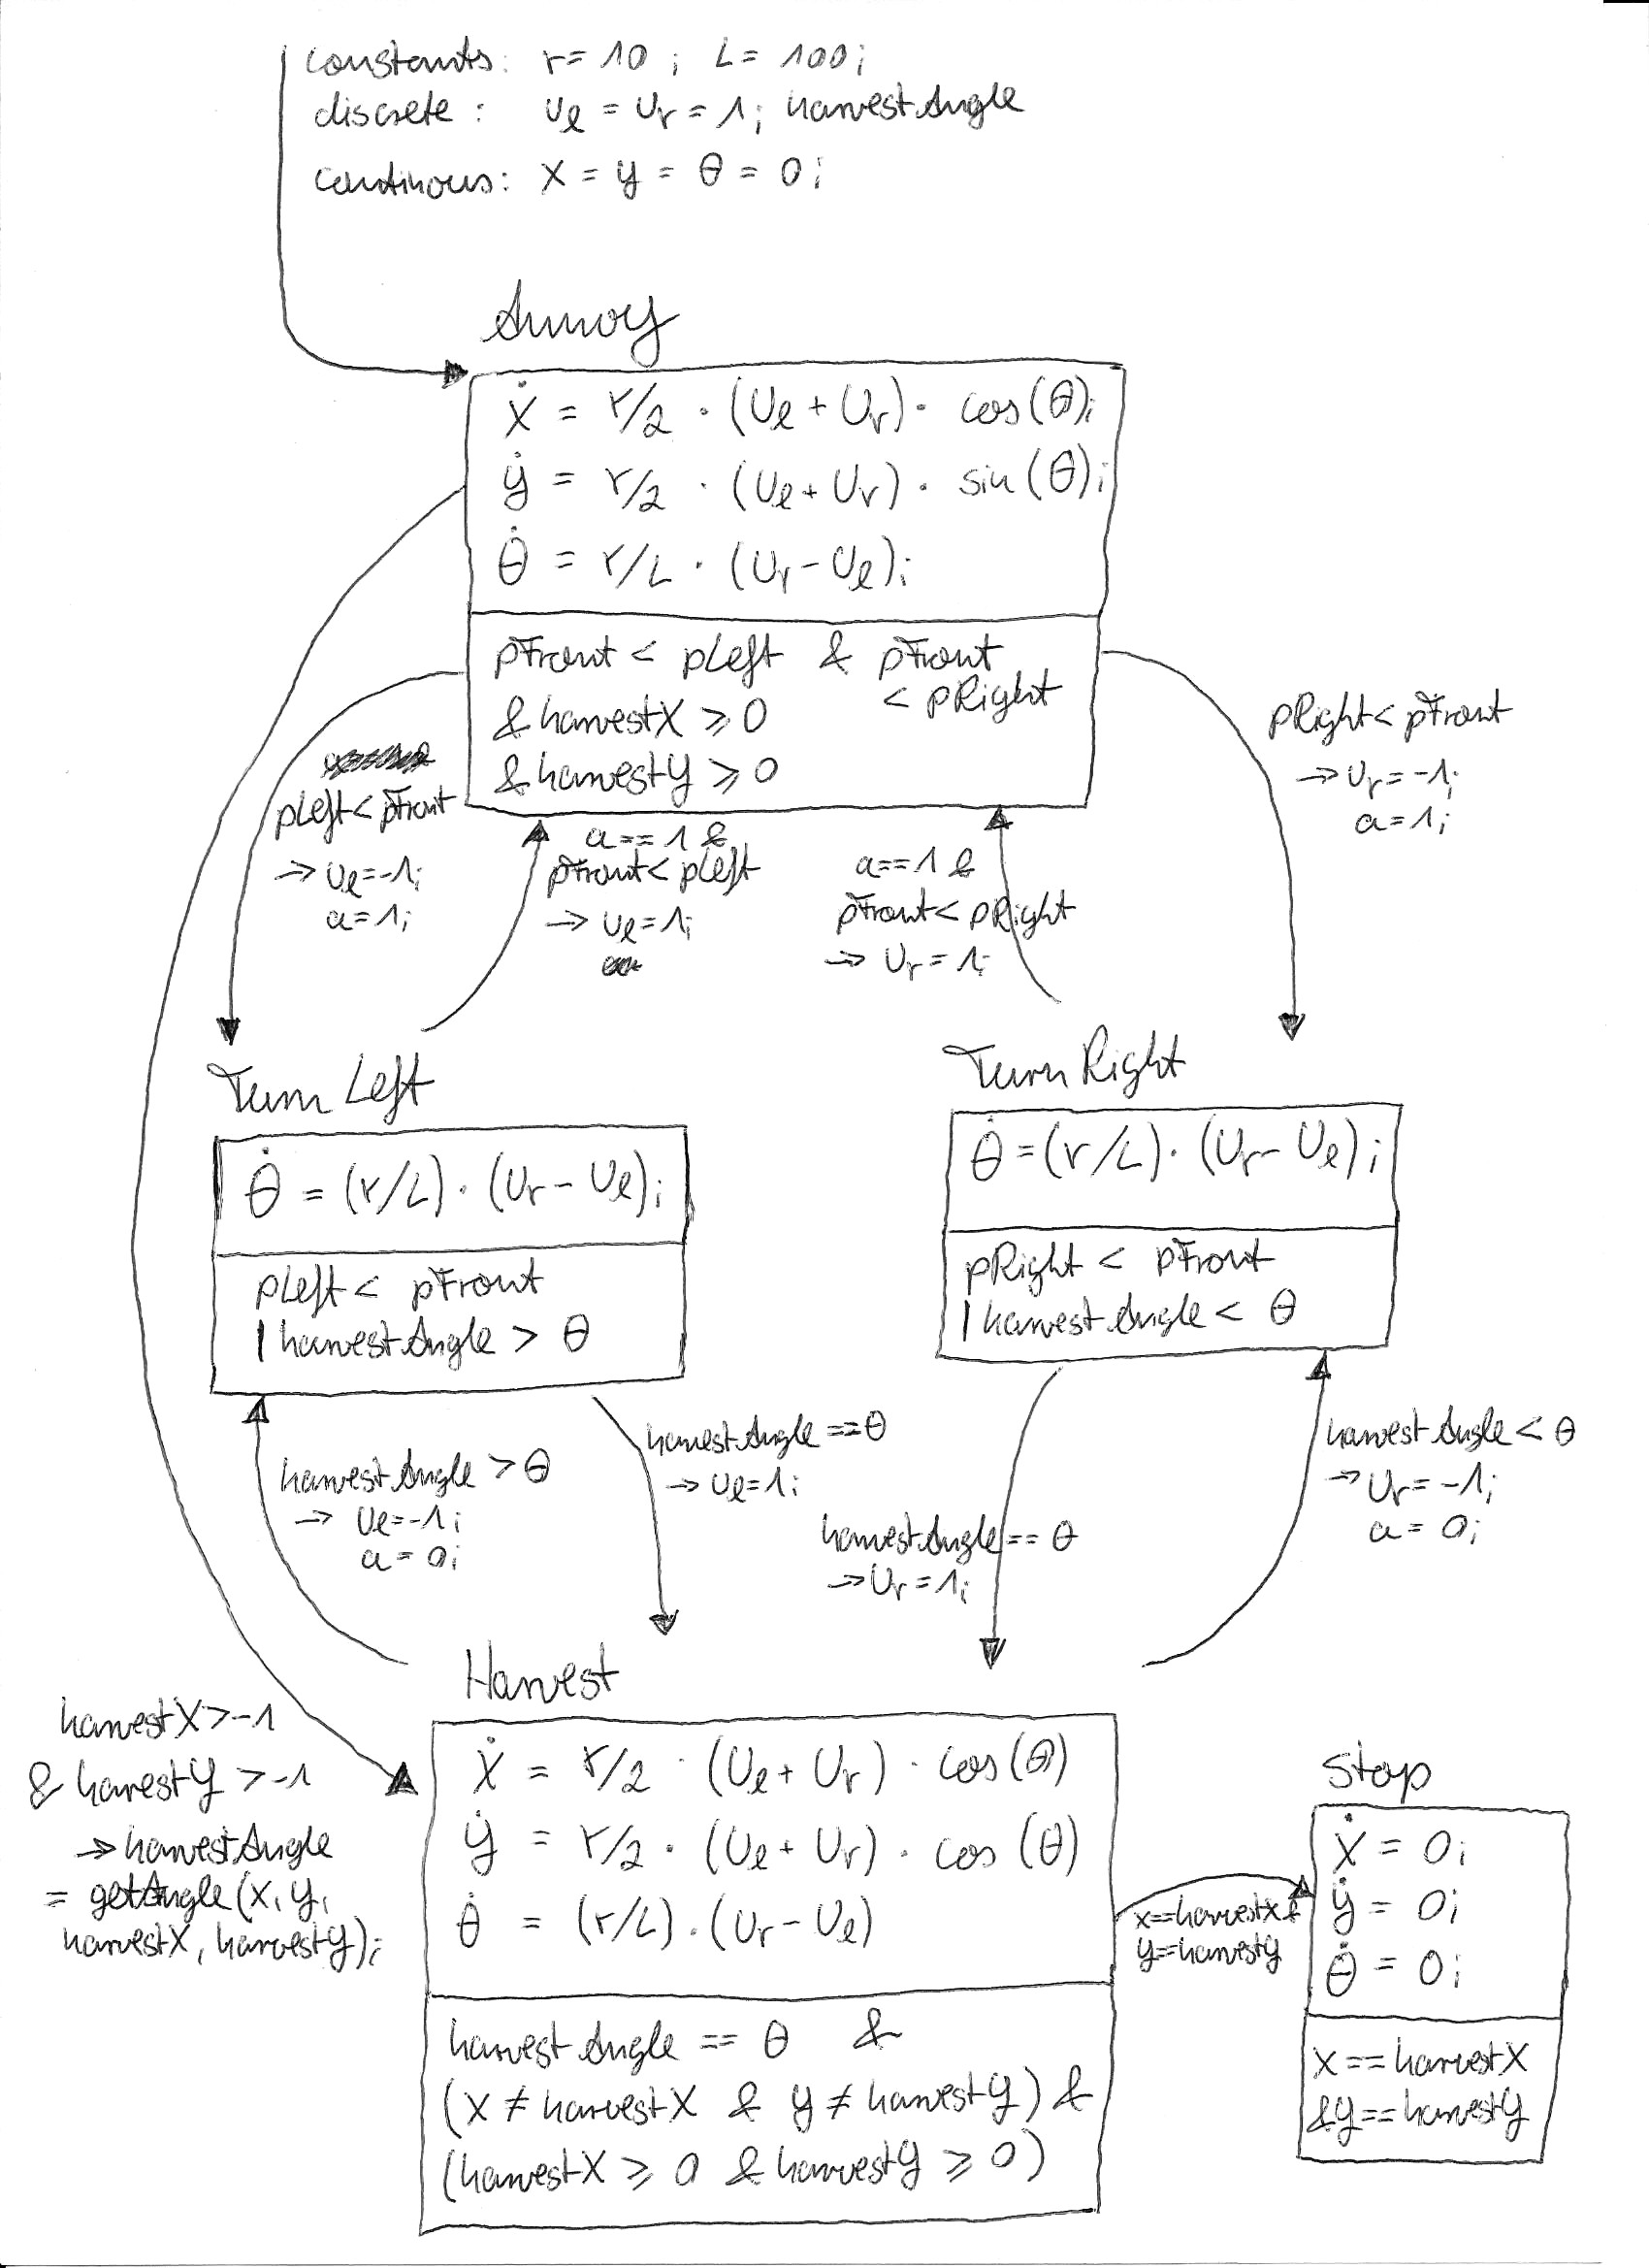 constants: r = 10 ; L = 100;
discrete : Ul = Ur = 1; harvestAngle
continous: x = y = θ = 0;
Annoy
ẋ = r/2 · (Ul + Ur) · cos(θ);
ẏ = r/2 · (Ul + Ur) · sin(θ);
θ̇ = r/L · (Ur - Ul);
pFront < pLeft & pFront
< pRight
& harvestX ⩾ 0
& harvestY ⩾ 0
pLeft < pFront
→ Ul = -1;
a = 1;
a == 1 &
pFront < pLeft
→ Ul = 1;
a == 1 &
pFront < pRight
→ Ur = 1;
pRight < pFront
→ Ur = -1;
a = 1;
Turn Left
θ̇ = (r/L) · (Ur - Ul);
pLeft < pFront
| harvestAngle > θ
Turn Right
θ̇ = (r/L) · (Ur - Ul);
pRight < pFront
| harvestAngle < θ
harvestAngle > θ
→ Ul = -1;
a = 0;
harvestAngle == θ
→ Ul = 1;
harvestAngle == θ
→ Ur = 1;
harvestAngle < θ
→ Ur = -1;
a = 0;
harvestX > -1
& harestY > -1
→ harvestAngle
= getAngle(x, y,
harvestX, harvestY);
Harvest
ẋ = r/2 · (Ul + Ur) · cos(θ)
ẏ = r/2 · (Ul + Ur) · cos(θ)
θ̇ = (r/L) · (Ur - Ul)
harvestAngle == θ &
(x ≠ harvestX & y ≠ harvestY) &
(harvestX ⩾ 0 & harvestY ⩾ 0)
x == harvestX &
y == harvestY
Stop
ẋ = 0;
ẏ = 0;
θ̇ = 0;
x == harvestX
& y == harvestY